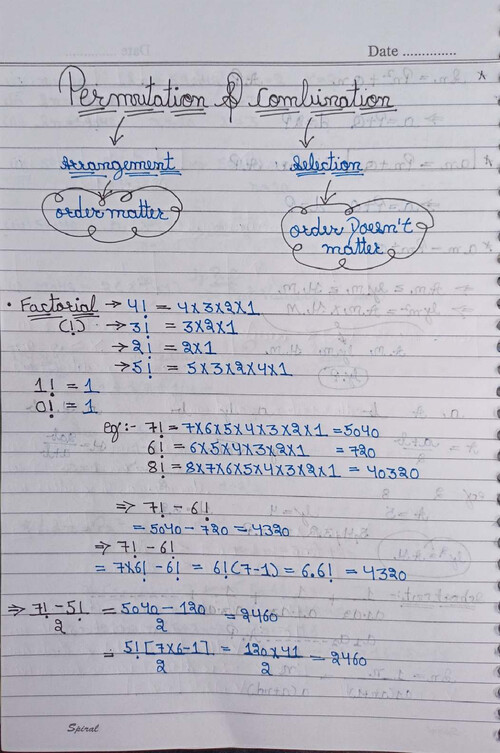 Date ..............
Permutation & Combination
Arrangement
Selection
order matter
order Doesn't
matter
• Factorial → 4! = 4×3×2×1
(!) → 3! = 3×2×1
→ 2! = 2×1
→ 5! = 5×3×2×4×1
1! = 1
0! = 1
eg:- 7! = 7×6×5×4×3×2×1 = 5040
6! = 6×5×4×3×2×1 = 720
8! = 8×7×6×5×4×3×2×1 = 40320
⇒ 7! - 6!
= 5040 - 720 = 4320
⇒ 7! - 6!
= 7×6! - 6! = 6!(7-1) = 6.6! = 4320
⇒ 7! - 5! / 2 = 5040 - 120 / 2 = 2460
= 5! [7×6-1] / 2 = 120×41 / 2 = 2460
Spiral